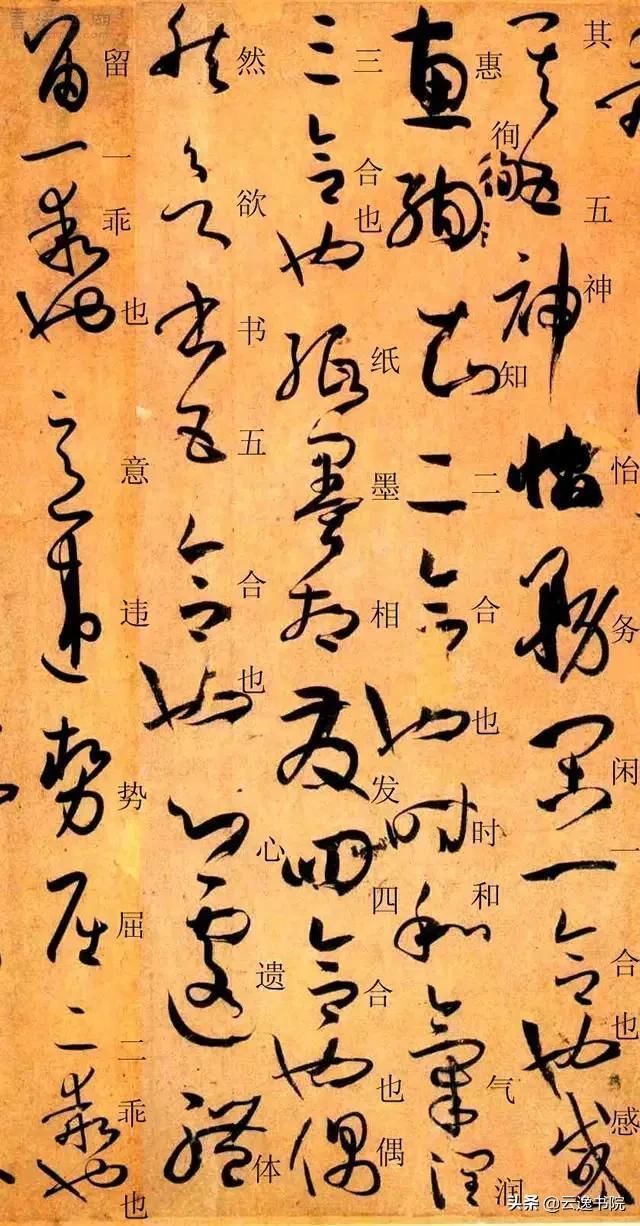 其五神怡务闲一合也感
惠徇知二合也时和气润
三合也纸墨相发四合也偶
然欲书五合也心遗体
留一乖也意违势屈二乖也
头条 @云逸书院